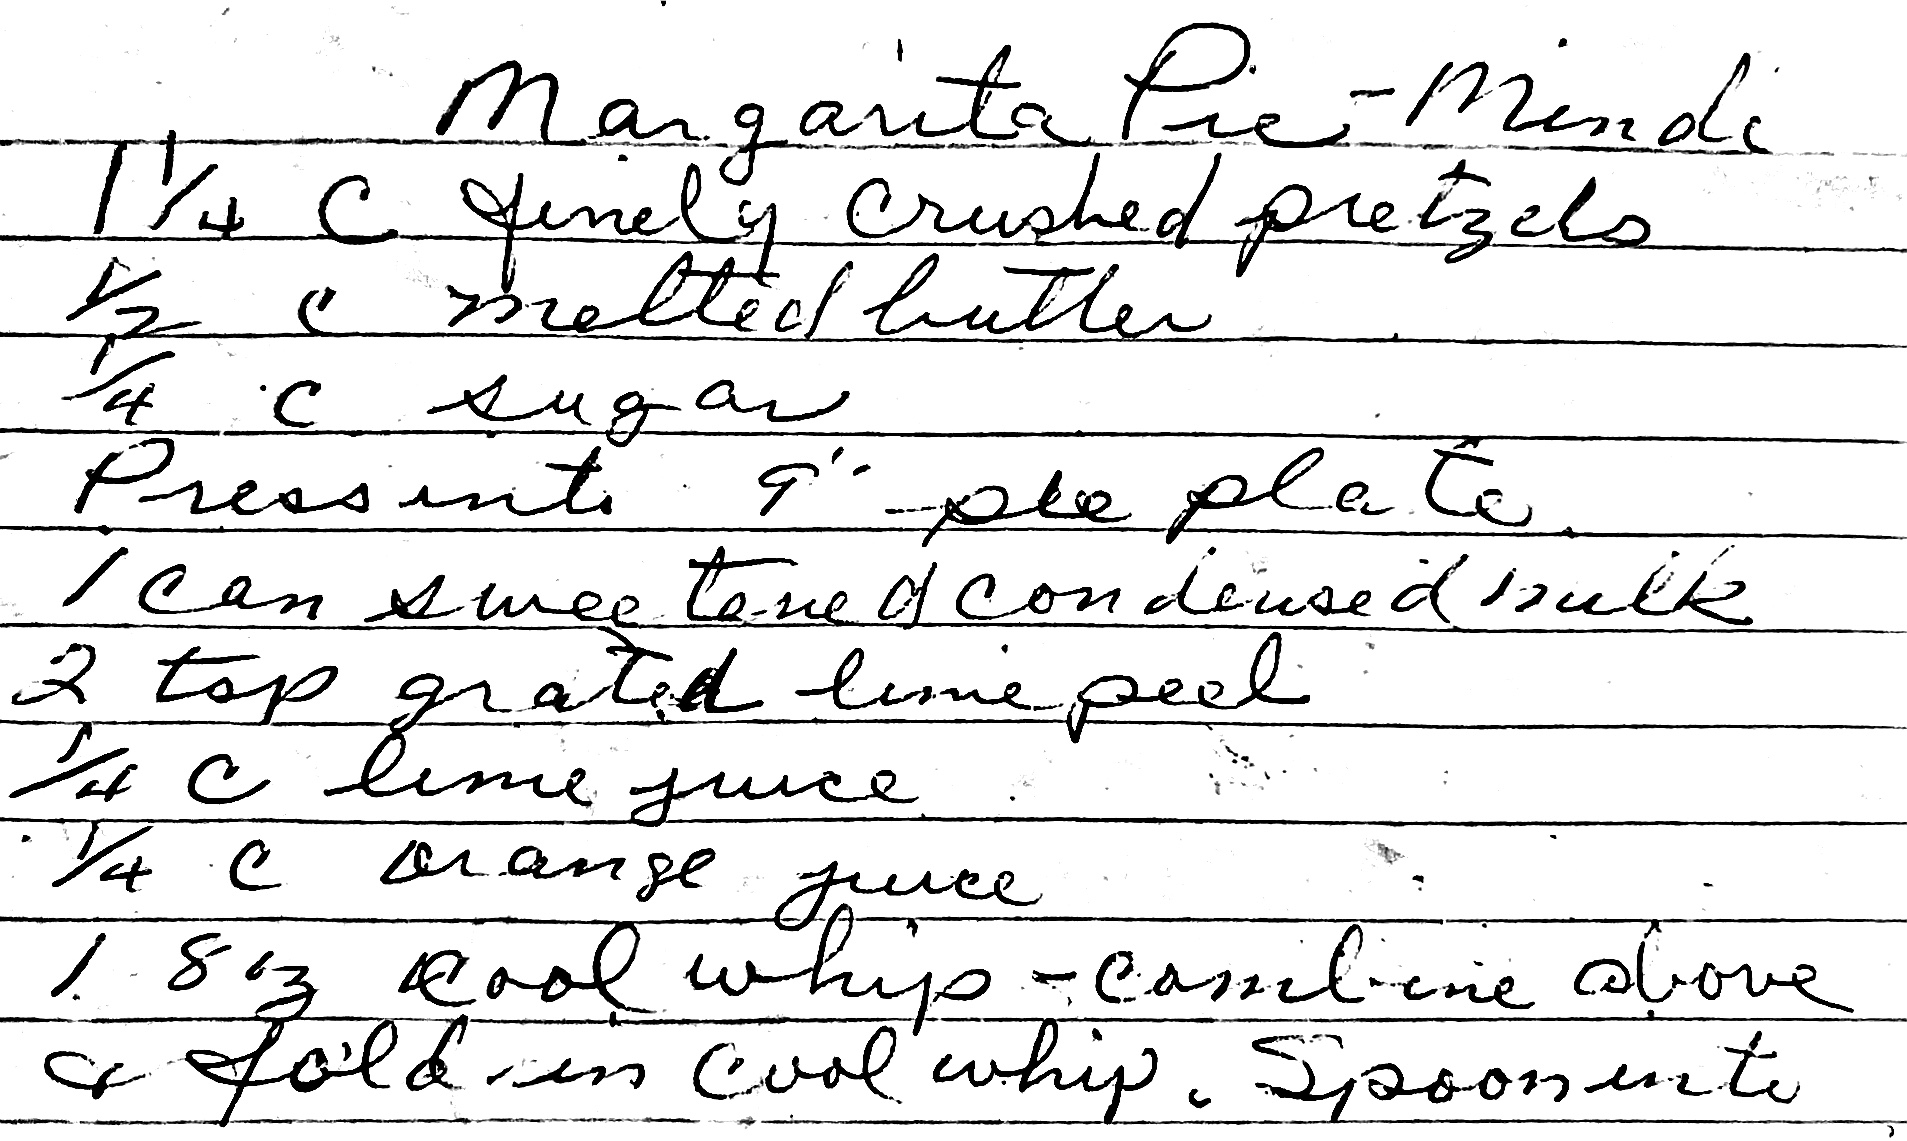 Margarita Pie - Mindi
1 1/4 C finely crushed pretzels
1/2 c melted butter
1/4 c sugar
Press into 9" pie plate.
1 can sweetened condensed milk
2 tsp grated lime peel
1/4 C lime juice
1/4 C orange juice
1 8 oz cool whip - combine above
& fold in cool whip. Spoon into